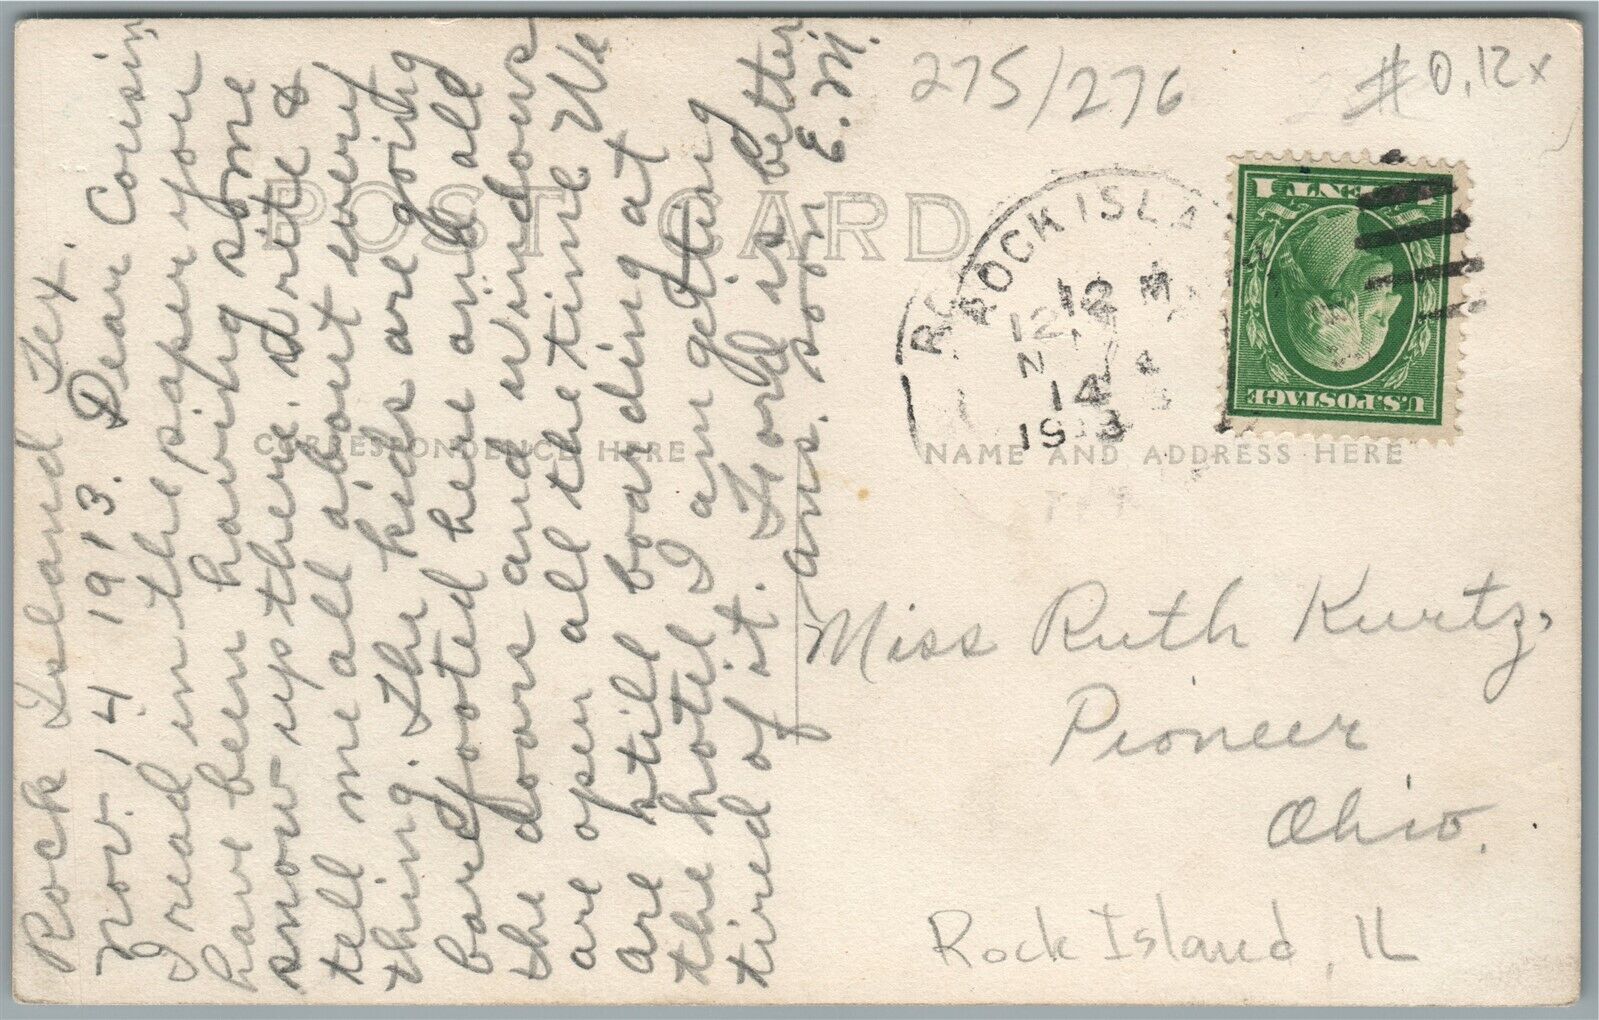 Rock Island Tex.
Nov. 14 1913. Dear Cousin
I read in the paper you
have been having some
snow up there. Write &
tell me all about every
thing. The kids are going
barefooted here and all
the doors and windows
are open all the time We
are still boarding at
the hotel I am getting
tired of it. Ford is better
ans. soon E. M.
POST CARD
CORRESPONDENCE HERE
NAME AND ADDRESS HERE
275/276
#0,12x
ROCK ISLA
12 M
14
1913
U.S. POSTAGE
1 CENT 1
Miss Ruth Kurtz,
Pioneer
Ohio.
Rock Island, IL